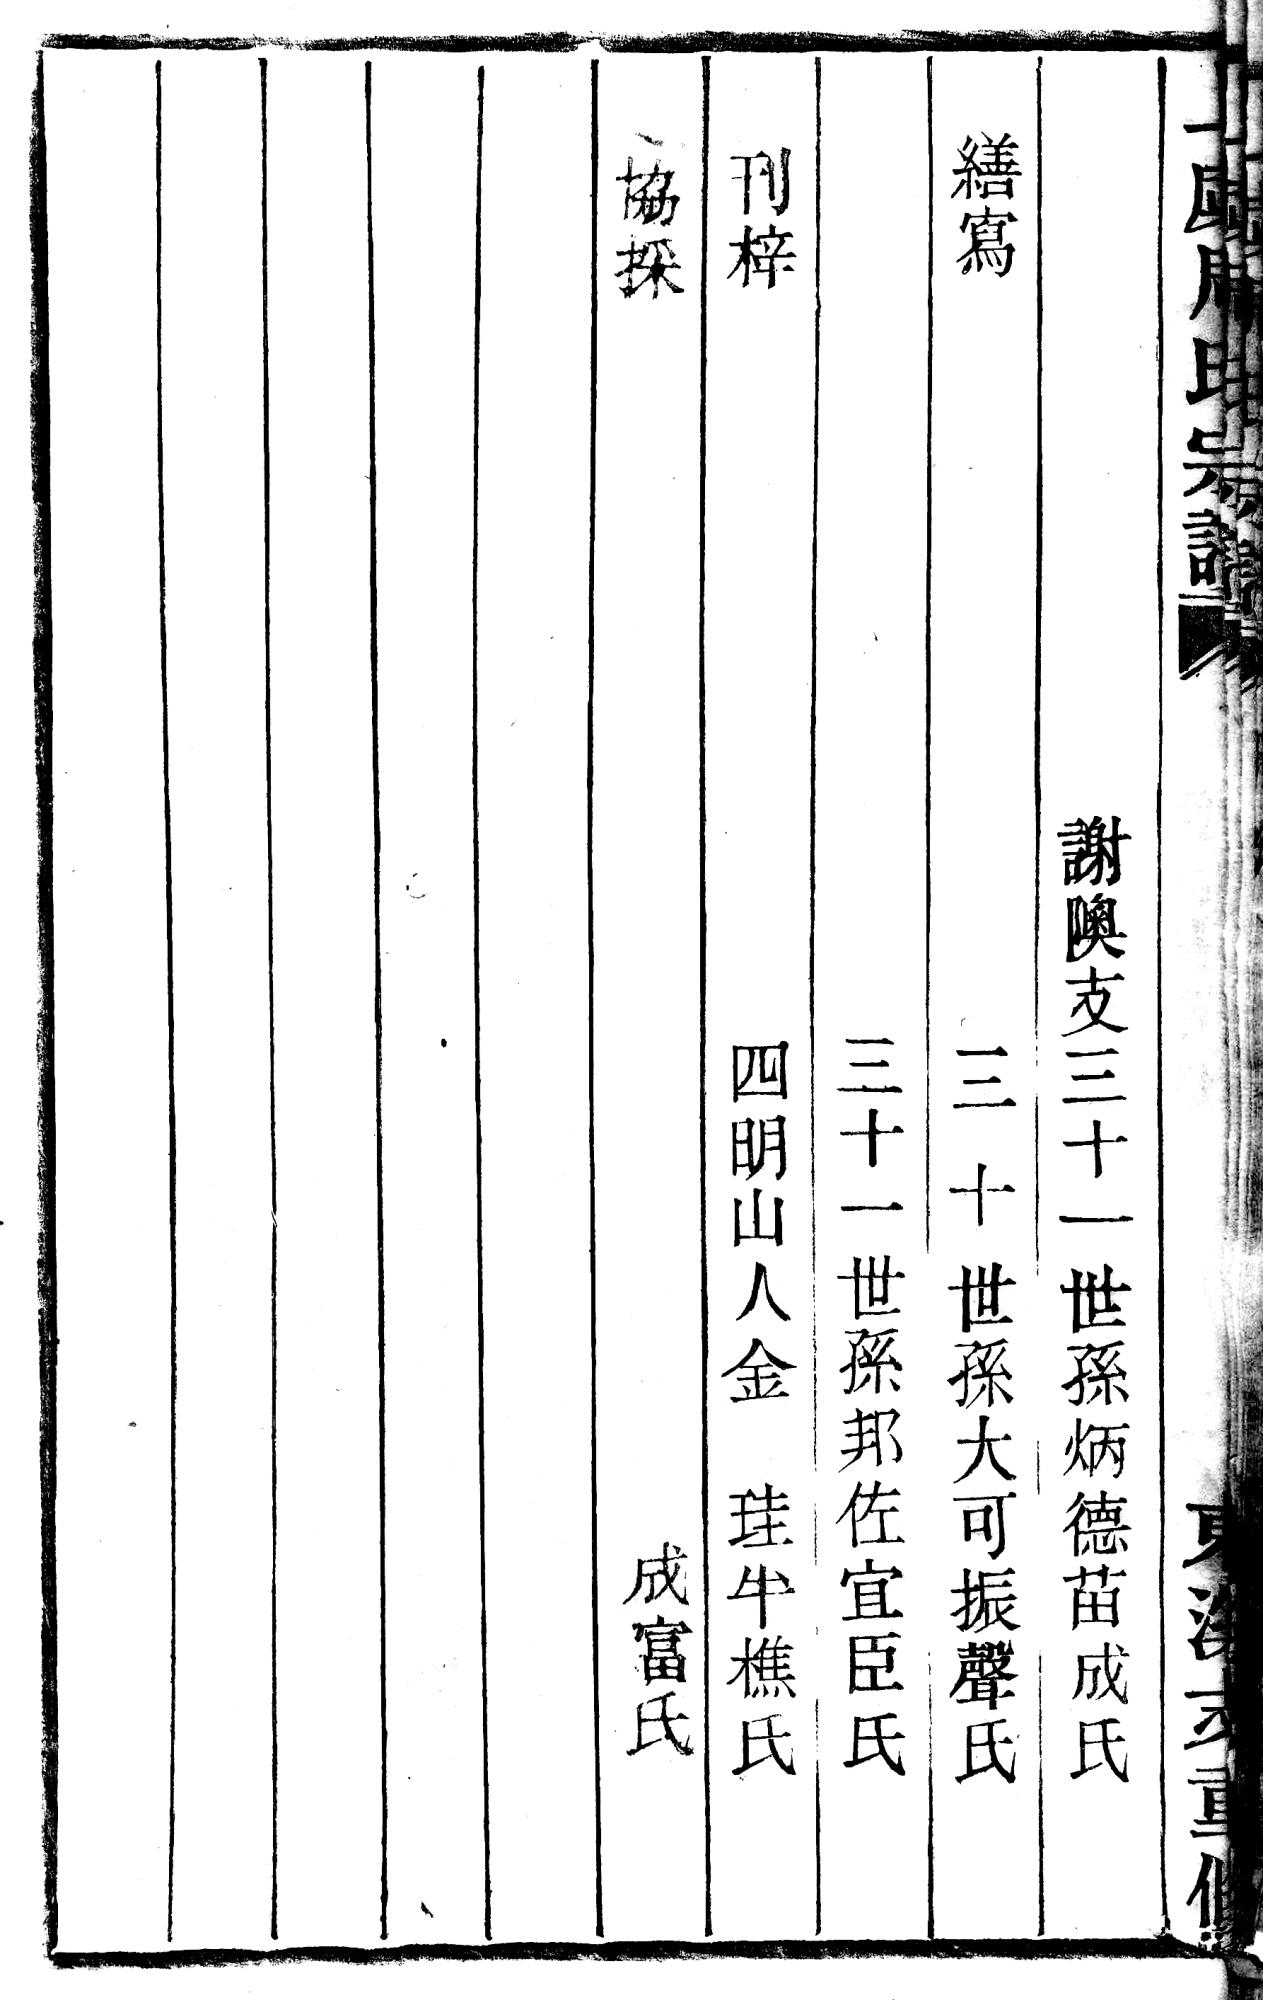 謝隩支三十一世孫炳德苗成氏
繕寫 三十世孫大可振聲氏
三十一世孫邦佐宜臣氏
刊梓 四明山人金 珪牛樵氏
協採 成富氏